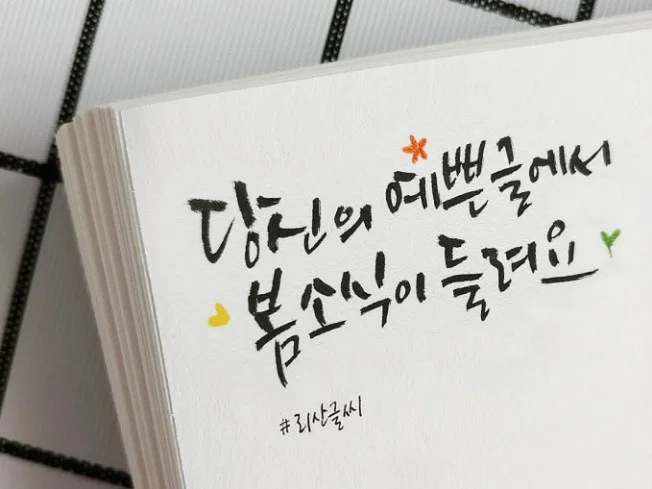 당신의 예쁜글에서
봄소식이 들려요
#리산글씨